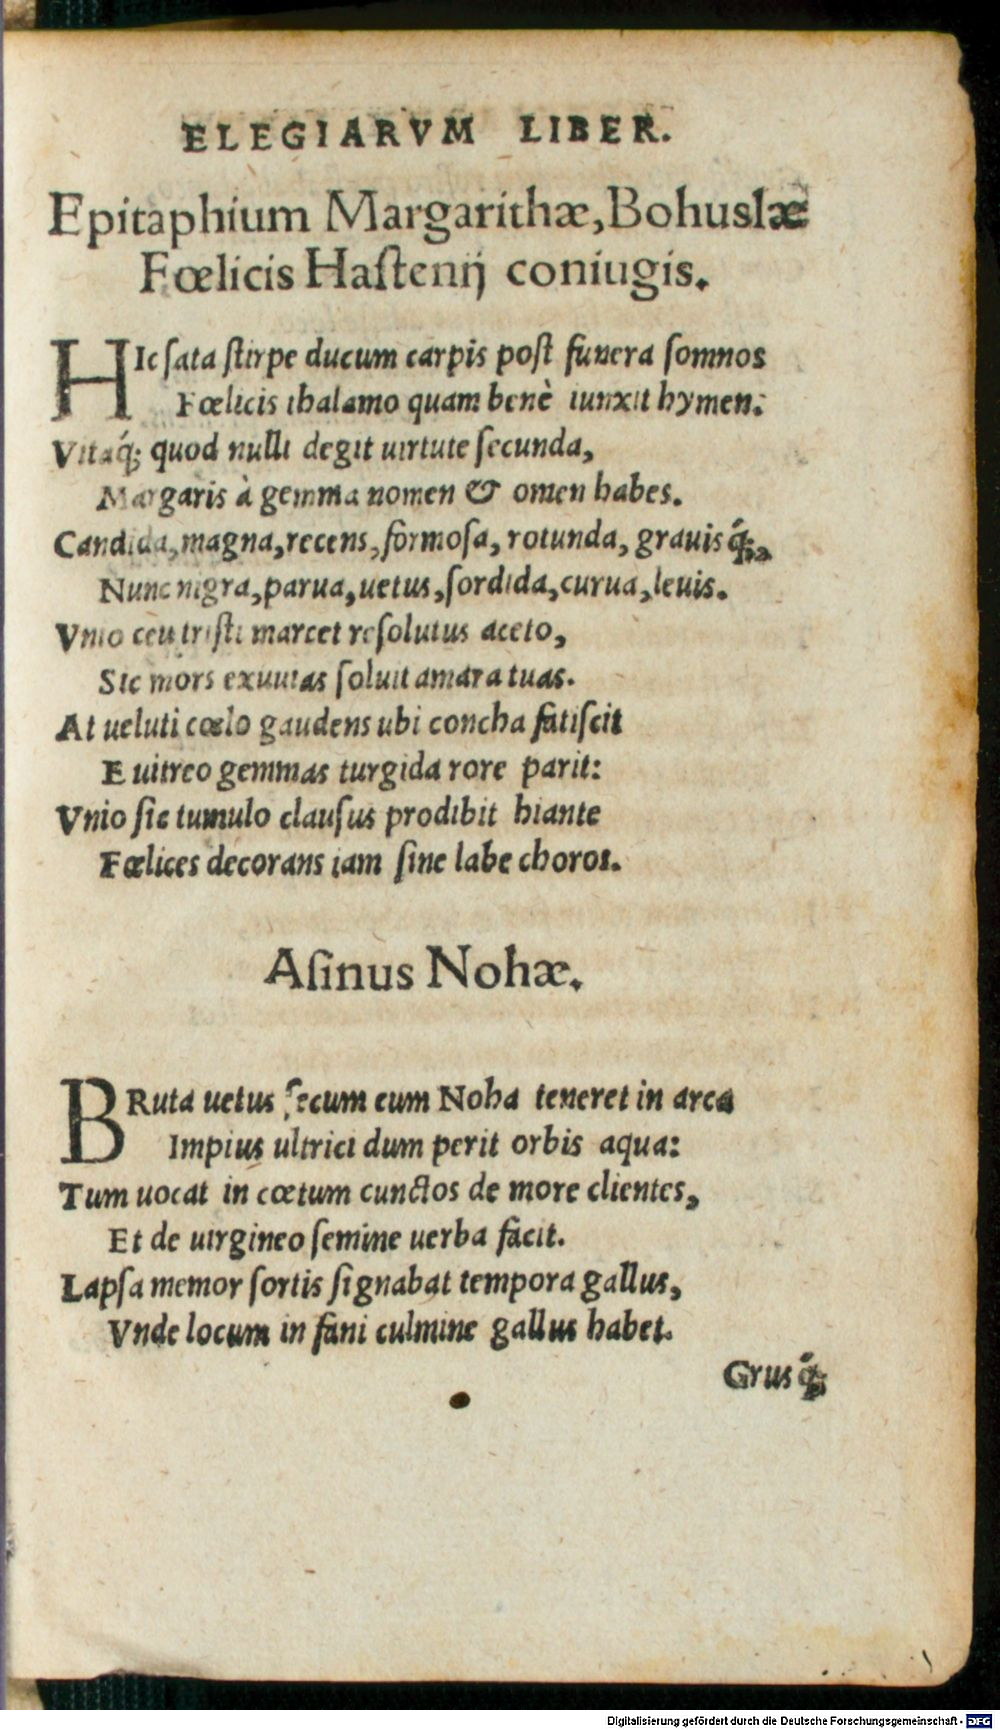 ELEGIARVM LIBER.
Epitaphium Margarithæ, Bohuslæ
Fœlicis Haſtenij coniugis.
HIc ſata ſtirpe ducum carpis poſt funera ſomnos
Fœlicis thalamo quam benè iunxit hymen:
Vitaq́; quod nulli degit uirtute ſecunda,
Margaris à gemma nomen & omen habes.
Candida, magna, recens, formoſa, rotunda, grauisq́;,
Nunc nigra, parua, uetus, ſordida, curua, leuis.
Vnio ceu triſti marcet reſolutus aceto,
Sic mors exuuias ſoluit amara tuas.
At ueluti cœlo gaudens ubi concha fatiſcit
E uitreo gemmas turgida rore parit:
Vnio ſic tumulo clauſus prodibit hiante
Fœlices decorans iam ſine labe choros.
Aſinus Nohæ.
BRuta uetus ſecum cum Noha teneret in arca
Impius ultrici dum perit orbis aqua:
Tum uocat in cœtum cunctos de more clientes,
Et de uirgineo ſemine uerba facit.
Lapſa memor ſortis ſignabat tempora gallus,
Vnde locum in fani culmine gallus habet.
Grusq́;
Digitalisierung gefördert durch die Deutsche Forschungsgemeinschaft - DFG